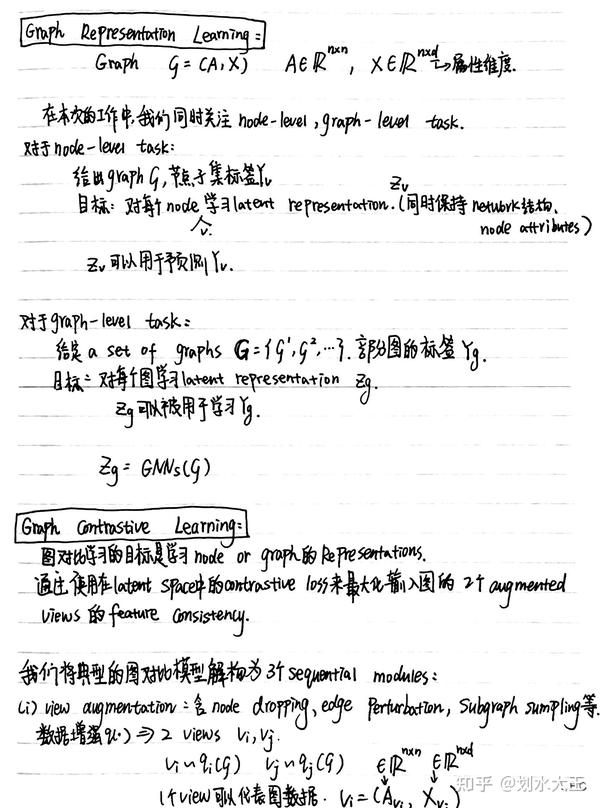 Graph Representation Learning:
Graph G = (A, X) A∈ℝⁿˣⁿ, X∈ℝⁿˣᵈ → 属性维度.
在本次的工作中,我们同时关注 node-level, graph-level task.
对于node-level task:
给出graph G, 节点子集标签Yv
目标: 对每个node v 学习latent representation Zv. (同时保持network结构、
node attributes)
Zv可以用于预测Yv.
对于graph-level task:
给定 a set of graphs G={G¹, G², ...}. 部分图的标签 Yg.
目标: 对每个图学习latent representation Zg.
Zg可以被用于学习Yg.
Zg = GNNs(G)
Graph Contrastive Learning:
图对比学习的目标是学习 node or graph的Representations.
通过使用在latent space中的contrastive loss来最大化输入图的 2个augmented
views 的 feature consistency.
我们将典型的图对比模型解构为 3个sequential modules:
(i) view augmentation: 含 node dropping, edge perturbation, subgraph sumpling等.
数据增强q(·) ⇒ 2 views vi, vj.
vi ~ qi(G) vj ~ qj(G) ∈ℝⁿˣⁿ ∈ℝⁿˣᵈ
1个view可以代表图数据. vi = (Avi, Xvi)
知乎 @划水大王